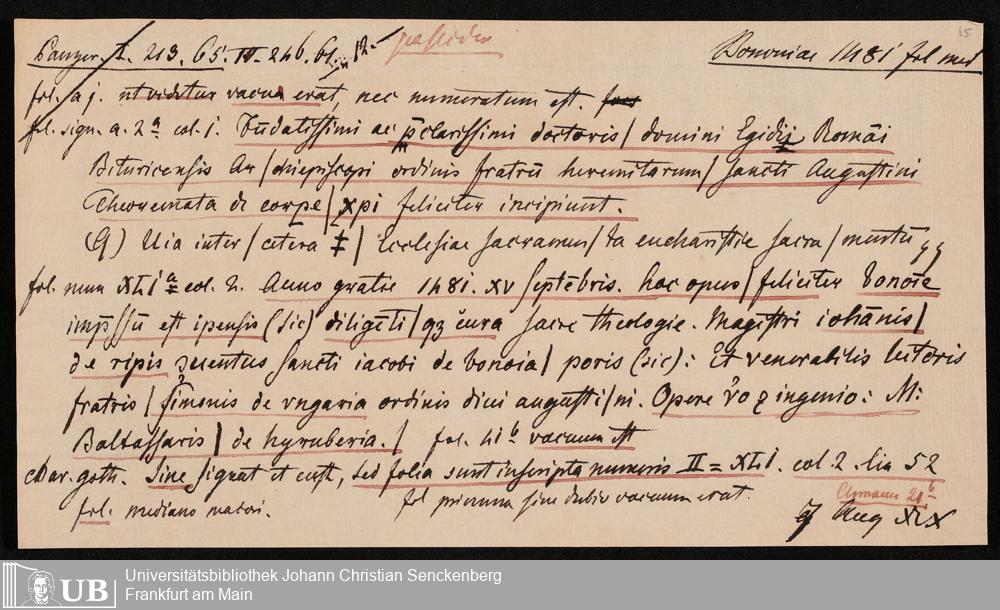 Panzer. I. 213. 65. IV. 246. 61. 12. Bononiae 1481 fol med
15
fol. a j. ut videtur vacua erat, nec numeratum est.
fol. sign. a. 2 a col. 1. Fūdatissimi ac p̄clarissimi doctoris / domini Egidij Romāi
Bituricensis Ar / chiepiscopi ordinis fratrū heremitarum / sancti Augustini
Theoremata de corpe / xpi feliciter incipiunt.
(Q) Uia inter / cetera / Ecclesiae sacramen / ta eucharistie sacra / mentū
fol. num XLI a col. 2. Anno gratie 1481. xv septēbris. hoc opus / feliciter bonōie
imp̄ssū est ipensis (sic) diligēti / qz cura sacre theologie. Magistri iohānis /
de ripis sancti iacobi de bonoia / poris (sic): Et venerabilis lectoris
fratris / simonis de vngaria ordinis diui augusti / ni. Opere ingenio: M:
Baltassaris / de hyruberia. / fol. 41 b vacuum est
Char. goth. Sine signat et cust, sed folia sunt inscripta numeris II = XLI. col. 2. lin 52
fol. mediano maiori. fol primum sine dubio vacuum erat.
Aug XIX